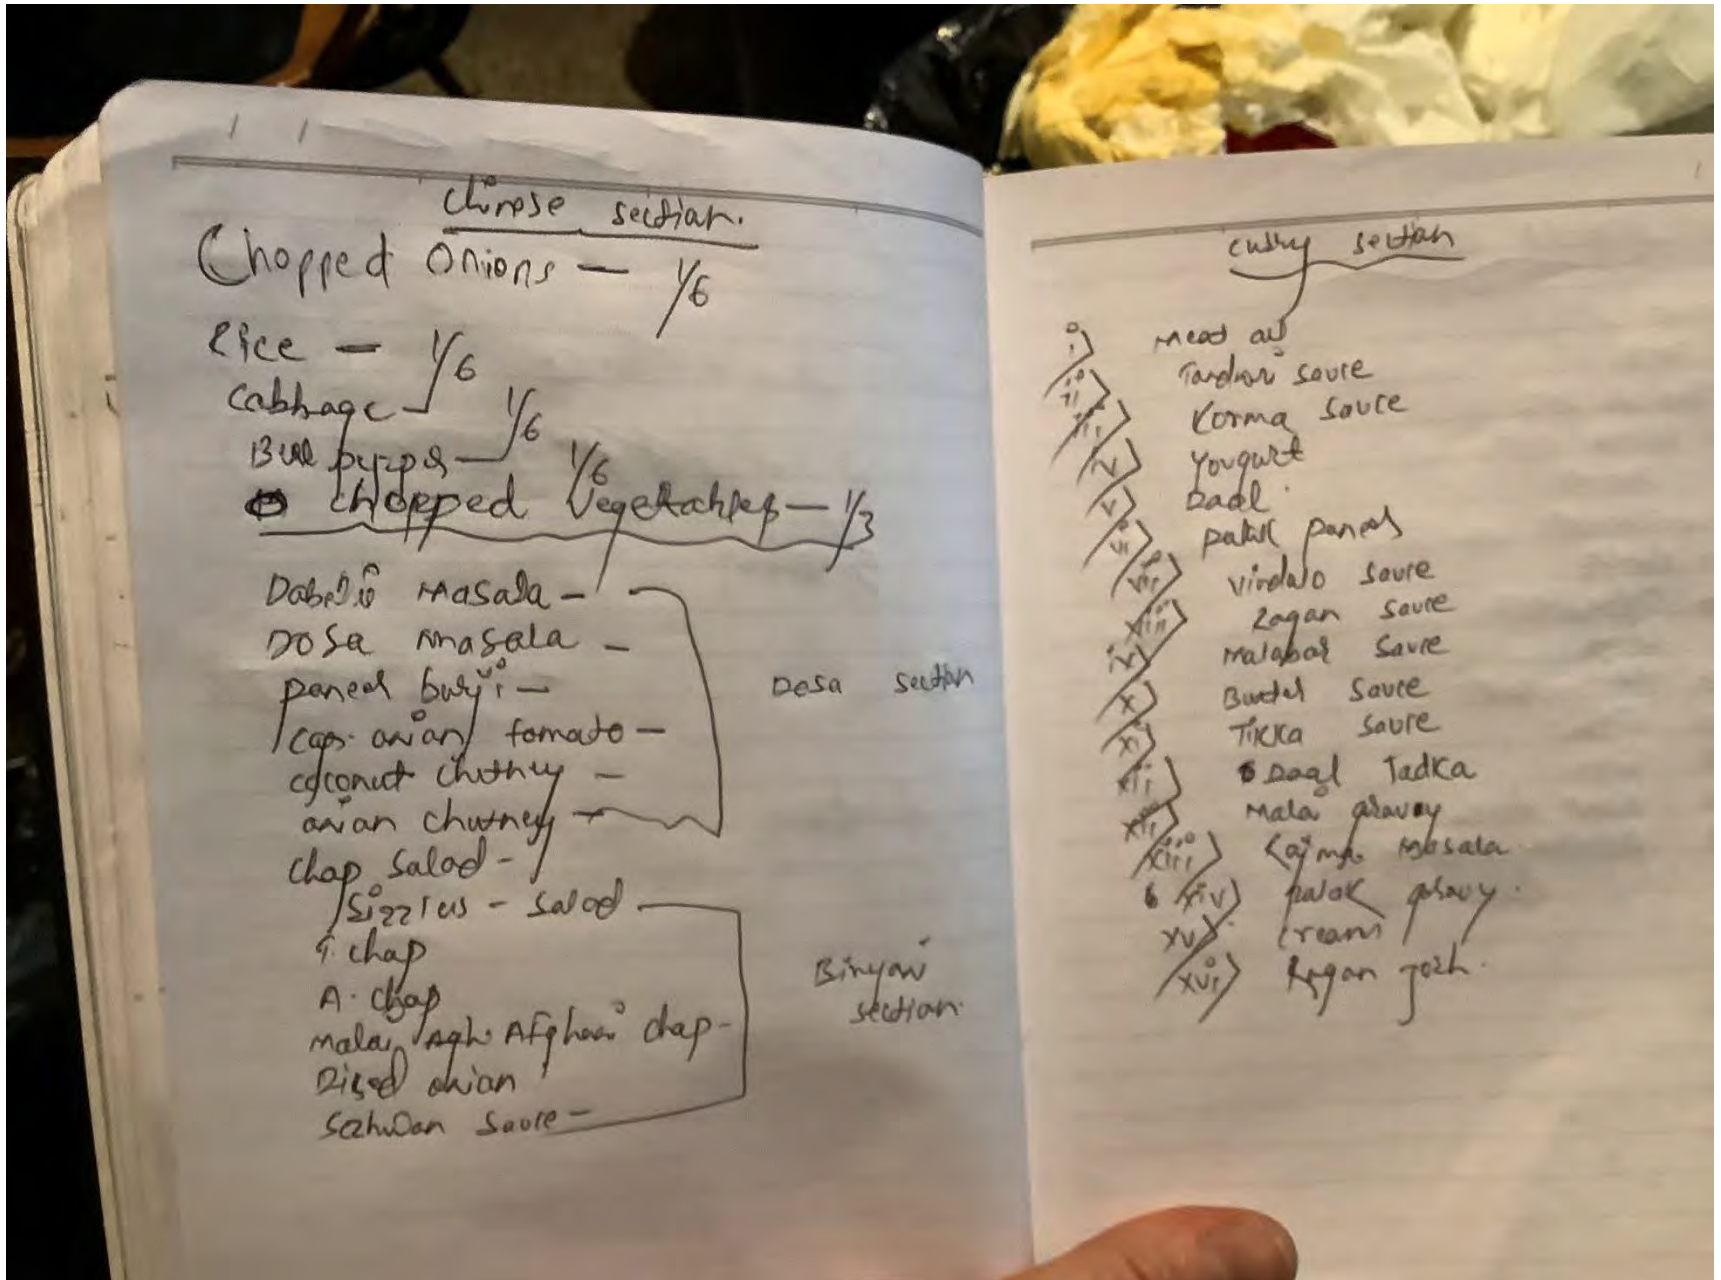 Chinese section.
Chopped Onions — 1/6
Rice — 1/6
Cabbage — 1/6
Bell 1/6
Chopped Vegetables — 1/3
Masala -
Dosa masala -
paneer burji -
onion tomato -
coconut chutney -
onion chutney -
Dosa section
Chap Salad -
Sizzlers - Salad
T. chap
A. chap
Malai Afghani chap -
Diced onion
Sauce -
Biryani section.
Curry section
i) Meat
ii) Tandoori sauce
iii) Korma Sauce
iv) Yougurt
v) Daal
vi) palak paneer
vii) Vindalo Sauce
viii) Rogan Sauce
ix) Malabar Sauce
x) Butter Sauce
xi) Tikka Sauce
xii) Daal Tadka
xiii) Malai gravay
xiii) Masala
xiv) palak gravy.
xv) Cream
xvi) Rogan josh.